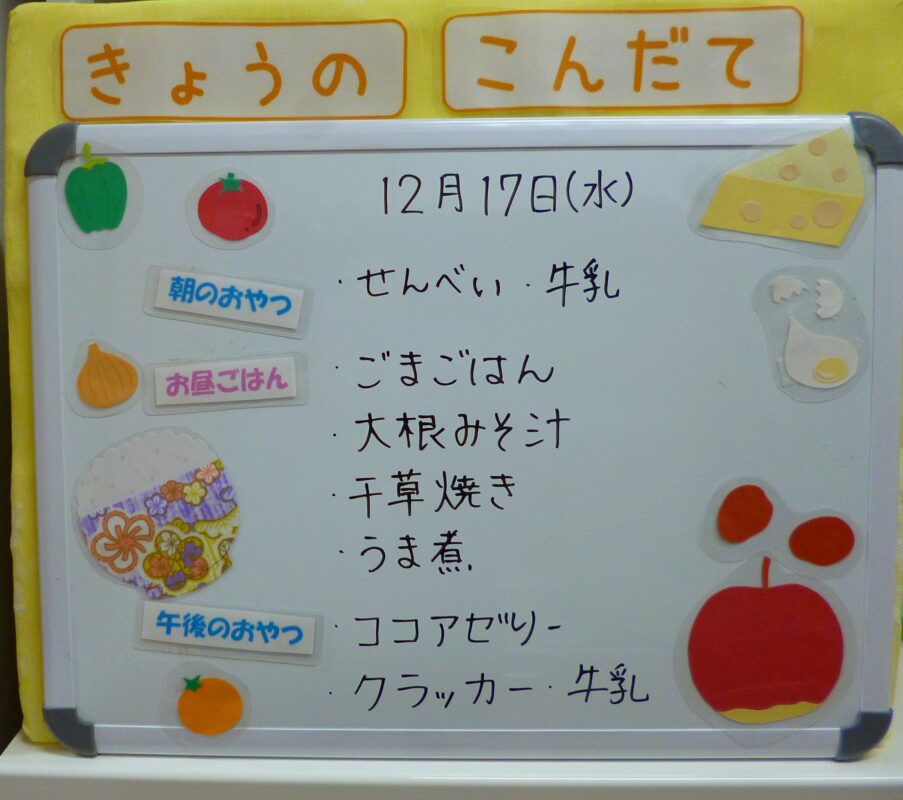 きょうの こんだて
12月17日(水)
朝のおやつ ・せんべい・牛乳
お昼ごはん ・ごまごはん
・大根みそ汁
・千草焼き
・うま煮
午後のおやつ ・ココアゼリー
・クラッカー・牛乳